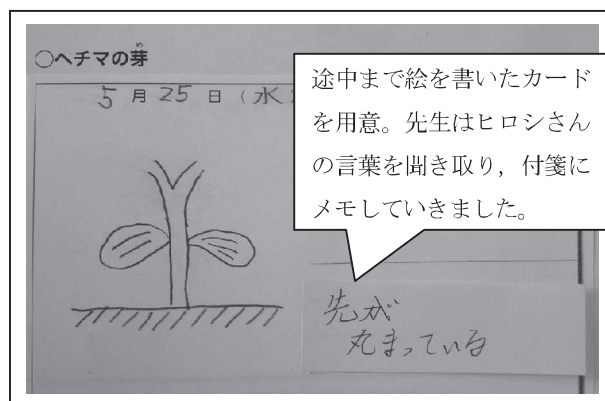 ○ヘチマの芽
め
5月25日(水)
途中まで絵を書いたカード
を用意。先生はヒロシさん
の言葉を聞き取り，付箋に
メモしていきました。
先が
丸まっている